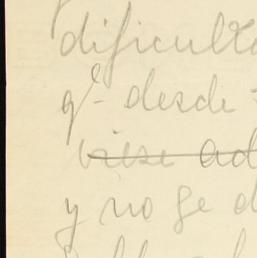 dificulta
q^e desde
viese ad
y no se d